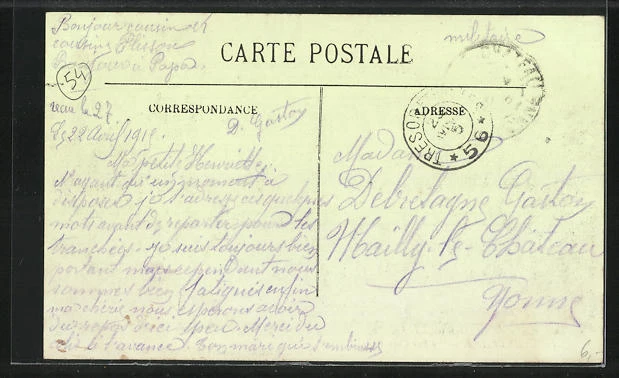 Bonjour cousin et
cousine Elisson
Bonjour à Papa
militaire
CARTE POSTALE
54
CORRESPONDANCE
ADRESSE
TRESOR
* 56 *
reçu le 27
D. Gaston
Le 22 Avril 1915
Ma petite Henriette
N'ayant qu'un moment à
disposer je t'adresse ces quelques
mots avant de repartir pour les
tranchées. je suis toujours bien
portant mais cependant nous
sommes bien fatigués enfin
ma chérie nous espérons avoir
du repos d'ici peu. Merci du
colis à l'avance. Ton mari qui
Madame
Debretagne Gaston
Mailly-le-Château
Yonne
6,-